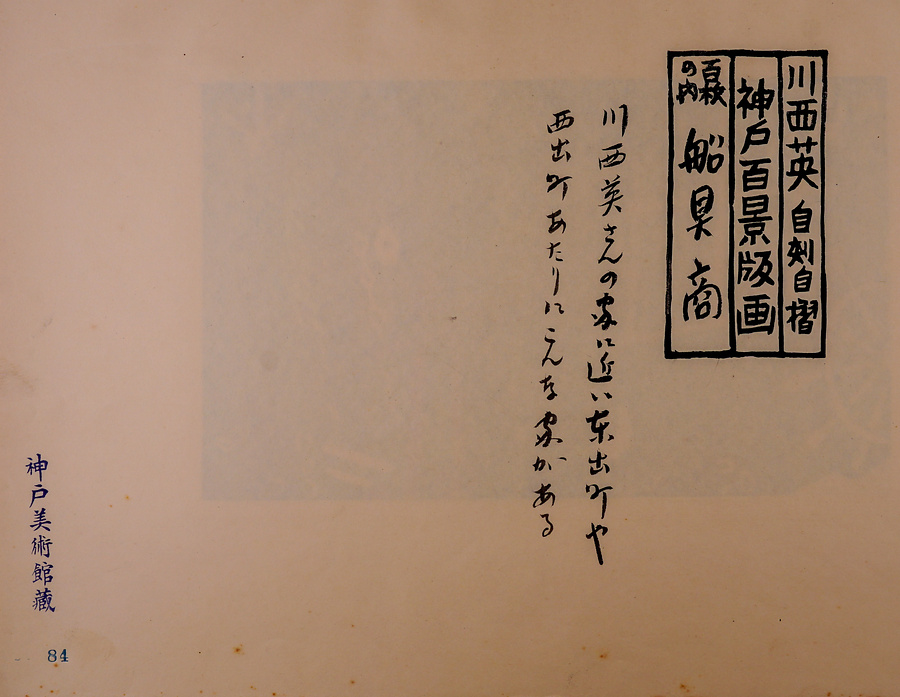 川西英 自刻自摺
神戸百景版画
百枚の内 船具商
川西英さんの家に近い東出町や
西出町あたりにこんな家がある
神戸美術館蔵
84